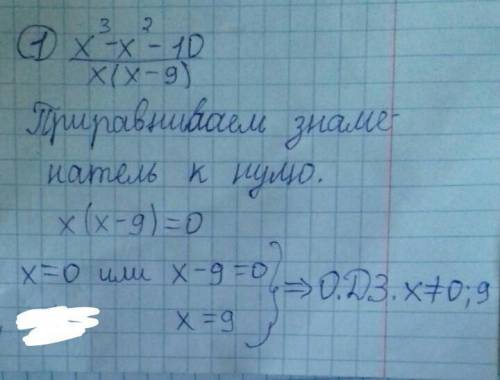 ① x³-x²-10
x(x-9)
Приравниваем знаме-
натель к нулю.
x(x-9)=0
x=0 или x-9=0 } ⇒ О.ДЗ. x≠0;9
x=9